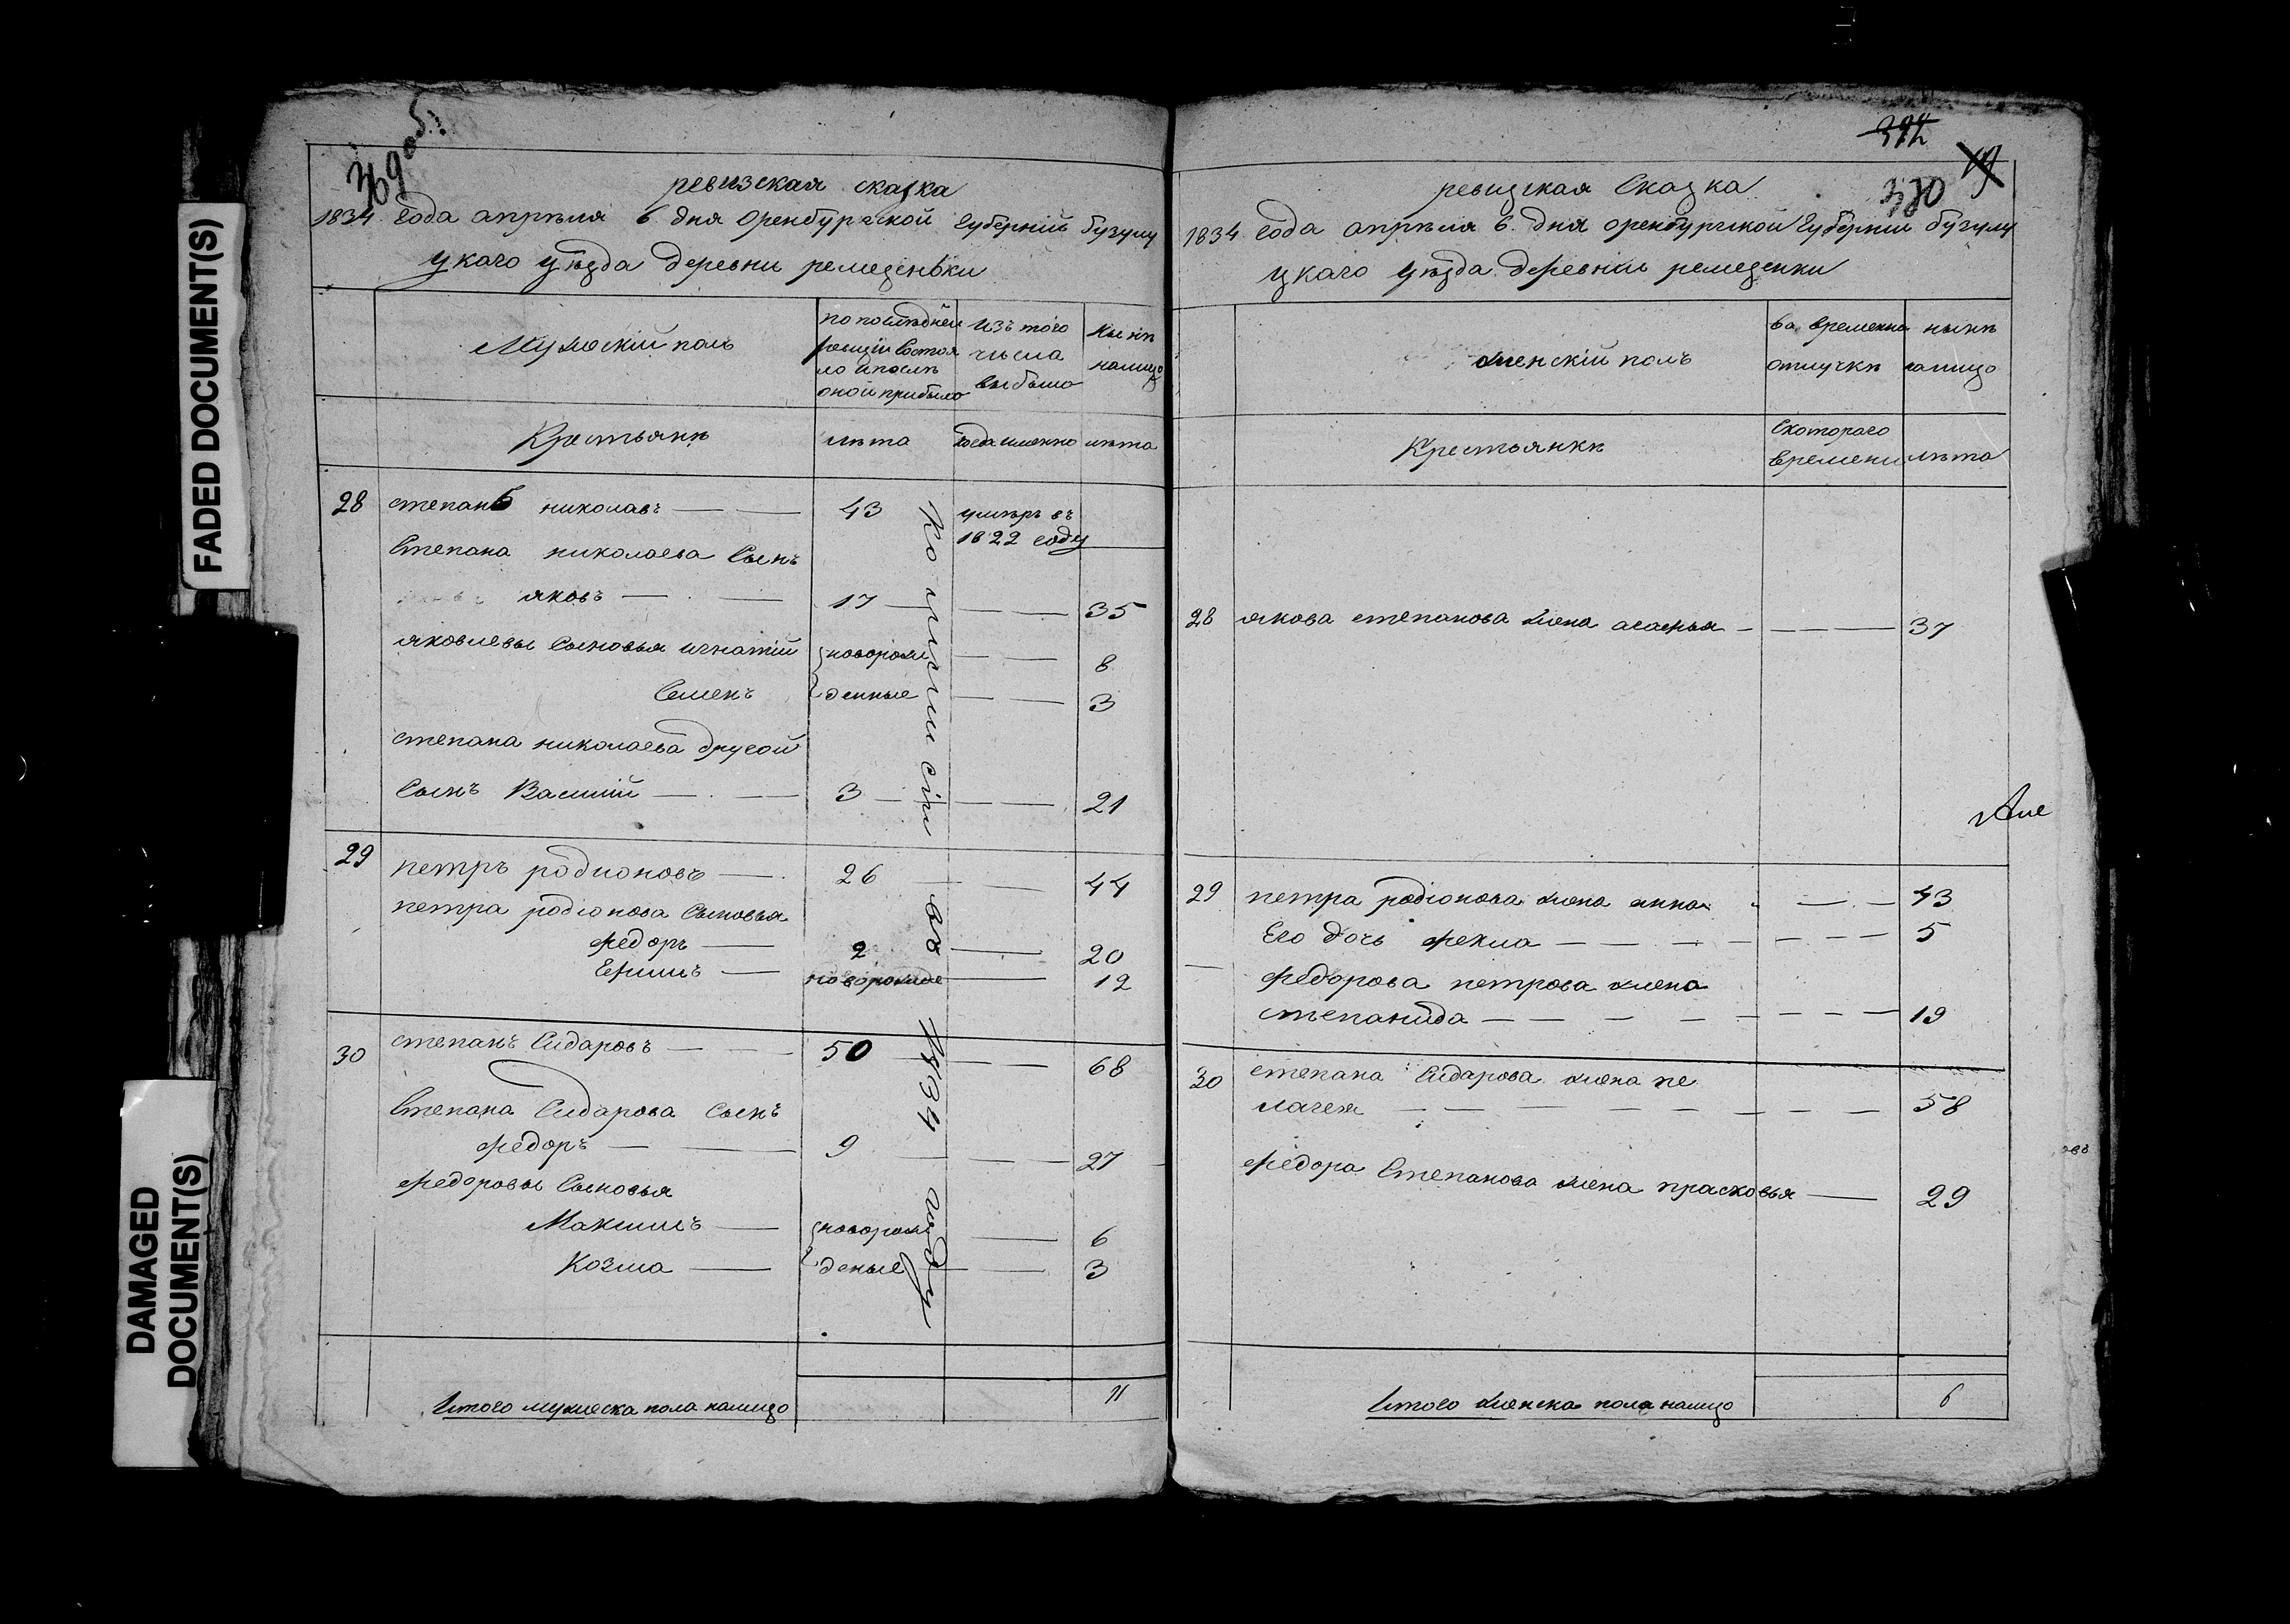 FADED DOCUMENT(S)
DAMAGED
DOCUMENT(S)
369 об:
ревизская сказка
1834 года апреля 6 дня Оренбургской губерніи бузулу
цкаго уѣзда деревни ремезенЬки
Мужескій полъ
по последней
ревизіи состоя
ло и послѣ
оной прибыло
изъ того
числа
выбыло
Нынѣ
налицо
Крестьянѣ
лѣта
когда именно
лѣта
28 степанъ николавъ — — 43 умѣръ въ
1822 году
Степана николаева Сынъ
яковъ — — 17 — — 35
яковлевы Сыновья игнатій новорож — — 8
Семенъ денные — — 3
степана николаева другой
Сынъ Василий — — 3 — — 21
29 петръ родионовъ — 26 — — 44
петра родионова Сыновья
федоръ — 2 — — 20
Ефимъ — новорожде — 12
30 степанъ Сидаровъ — — 50 — — 68
Степана Сидарова Сынъ
федоръ — — 9 — — 27
федоровы Сыновья
Максимъ — новорож — 6
Козма — деные — — 3
въ 1834 году
Итого мужеска пола налицо 11
372
19
370
ревизская Сказка
1834 года апреля 6. дня оренбургской губерніи бузулу
цкаго уѣзда деревни ремезенки
женскій полъ
во временно
отлучкѣ
нынѣ
налицо
Крестьянкѣ
Скотораго
времени
лѣта
28 якова степанова жена агафья — — — 37
29 петра родіонова жена анна — — 43
Его дочь фекла — — — — — — 5
федорова петрова жена
степанида — — — — — — — 19
30 степана Сидарова жена пе
лагея — — — — — — — — 58
федора Степанова жена прасковья — 29
Итого женска пола налицо 6